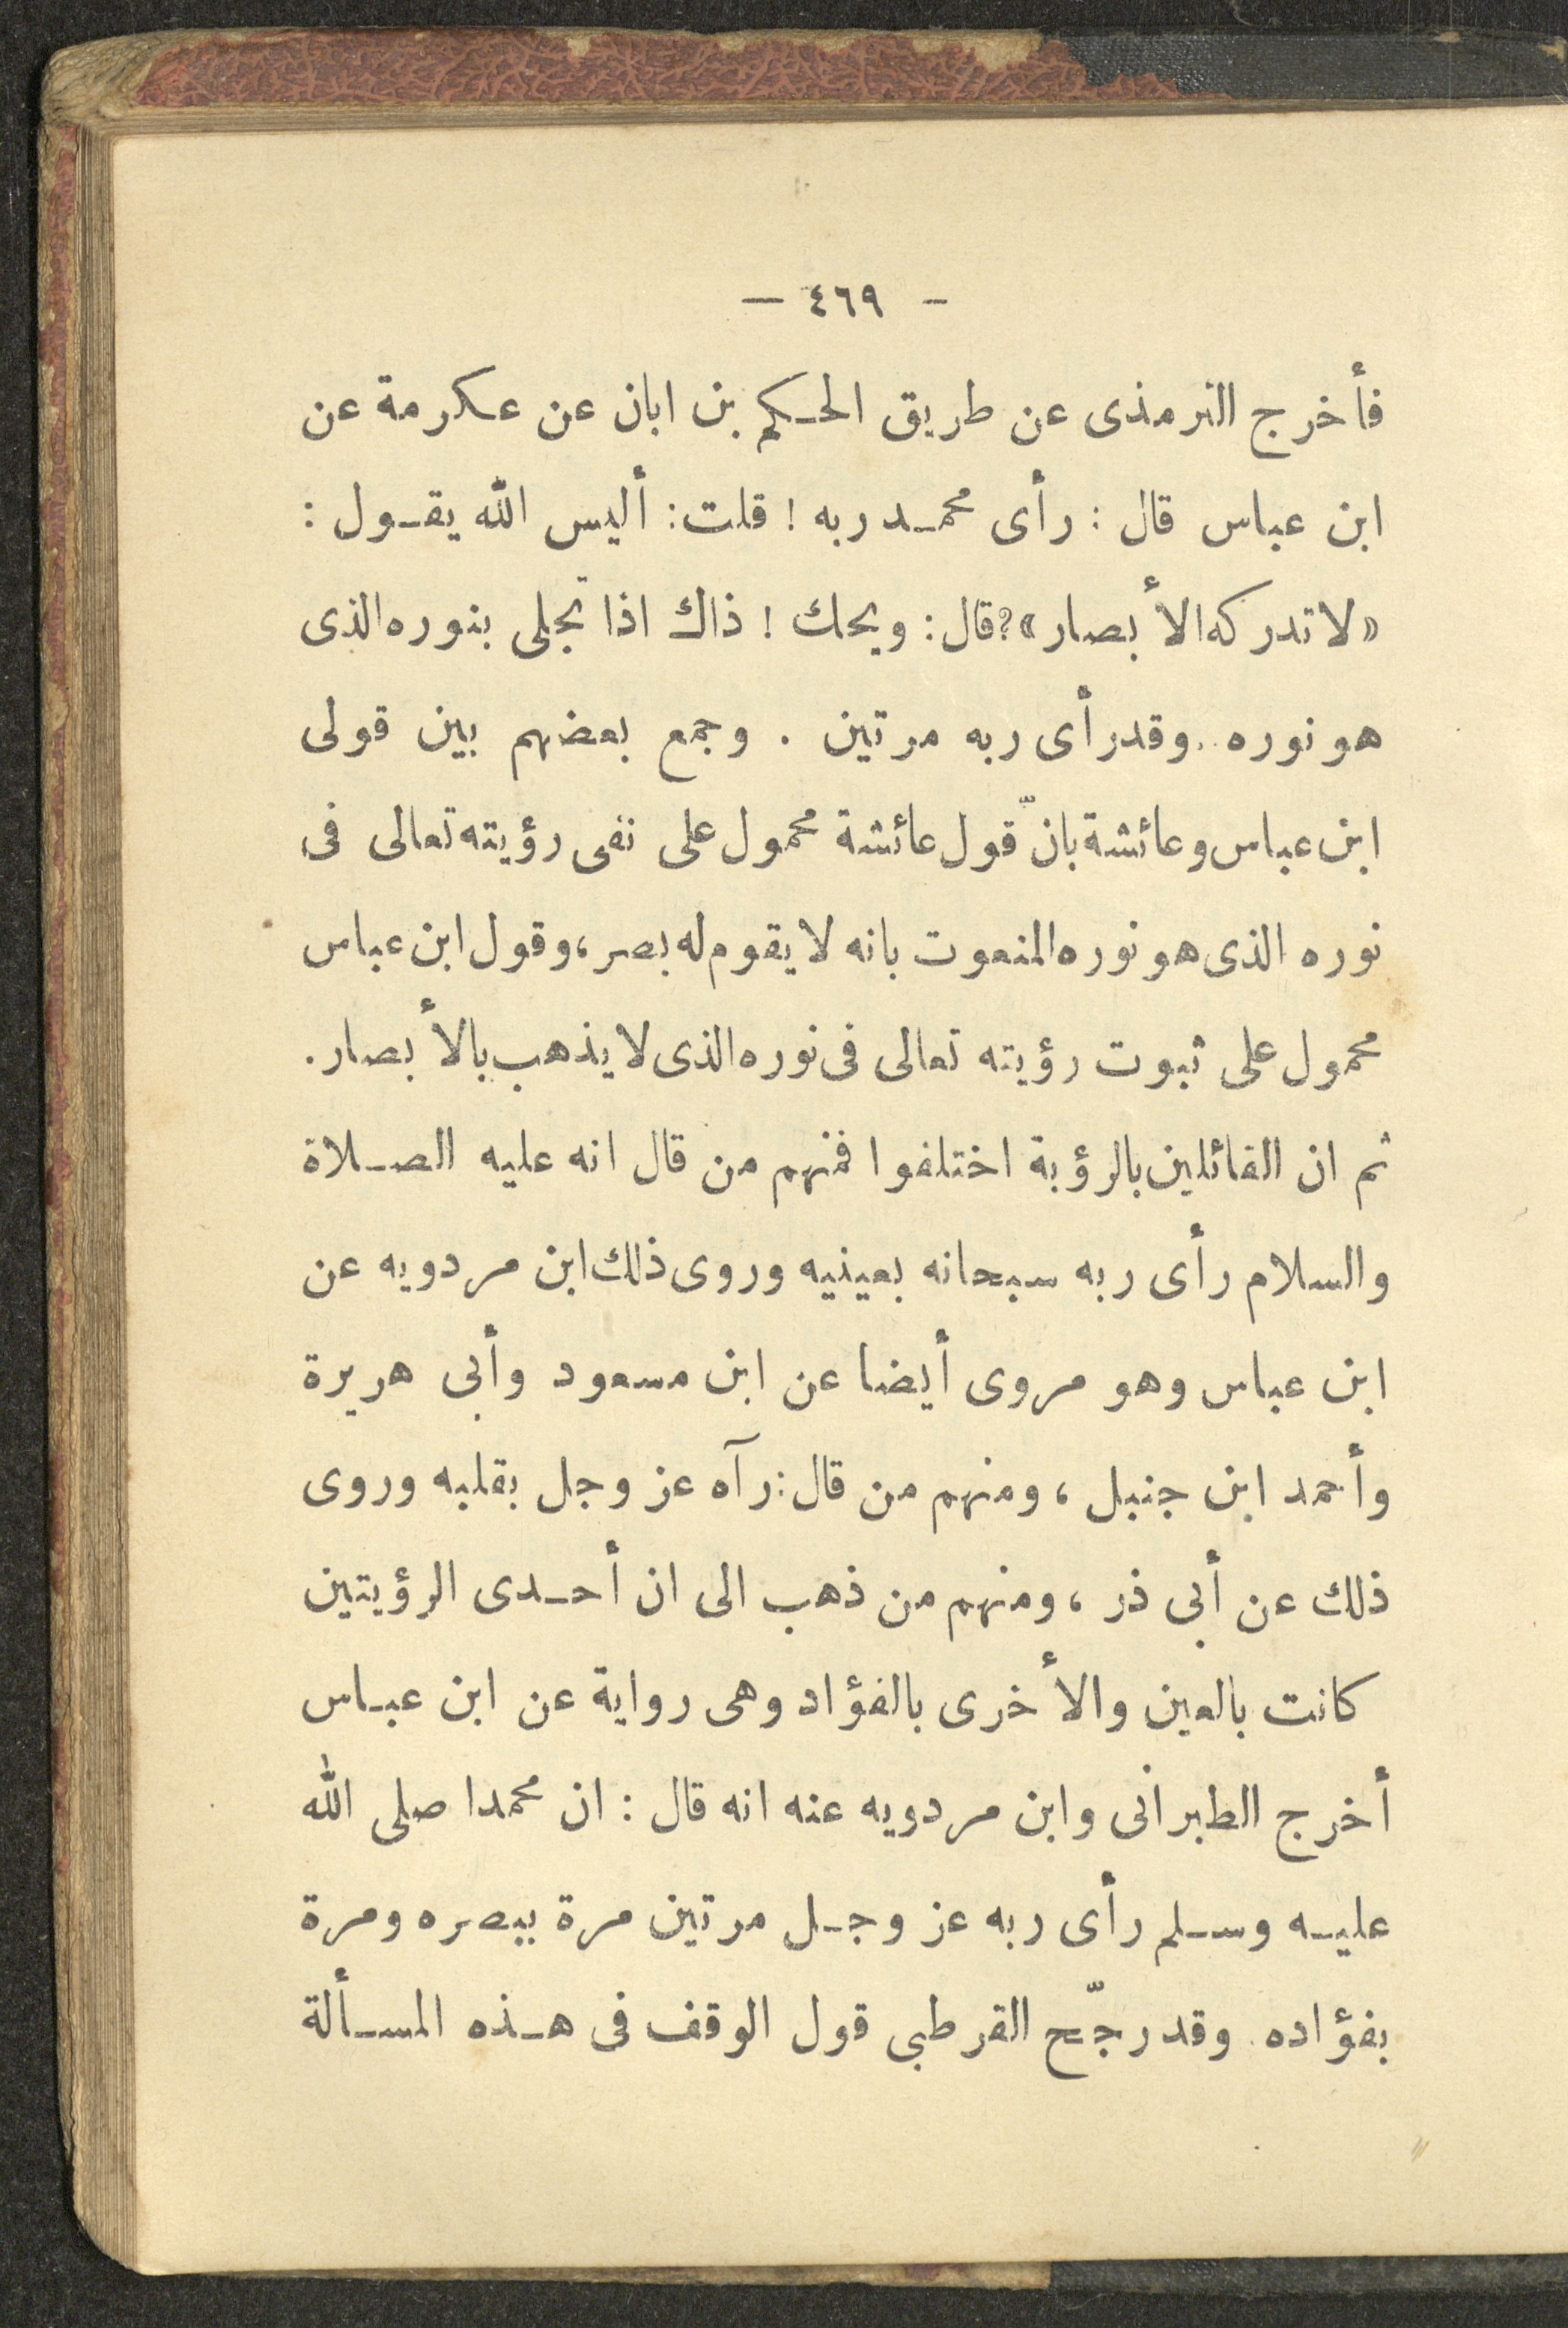 - ٤٦٩ —
فأخرج الترمذى عن طريق الحكم بن ابان عن عكرمة عن
ابن عباس قال : رأى محمد ربه ! قلت : أليس الله يقول :
«لا تدركه الأبصار»؟ قال : ويحك ! ذاك اذا تجلى بنوره الذى
هو نوره . وقد رأى ربه مرتين . وجمع بعضهم بين قولى
ابن عباس وعائشة بانّ قول عائشة محمول على نفى رؤيته تعالى فى
نوره الذى هو نوره المنعوت بانه لا يقوم له بصر ، وقول ابن عباس
محمول على ثبوت رؤيته تعالى فى نوره الذى لا يذهب بالأبصار .
ثم ان القائلين بالرؤية اختلفوا فمنهم من قال انه عليه الصلاة
والسلام رأى ربه سبحانه بعينيه وروى ذلك ابن مردويه عن
ابن عباس وهو مروى أيضا عن ابن مسعود وأبى هريرة
وأحمد ابن جنبل ، ومنهم من قال : رآه عز وجل بقلبه وروى
ذلك عن أبى ذر ، ومنهم من ذهب الى ان أحدى الرؤيتين
كانت بالعين والأخرى بالفؤاد وهى رواية عن ابن عباس
أخرج الطبرانى وابن مردويه عنه انه قال : ان محمدا صلى الله
عليه وسلم رأى ربه عز وجل مرتين مرة ببصره ومرة
بفؤاده . وقد رجّح القرطبى قول الوقف فى هذه المسألة